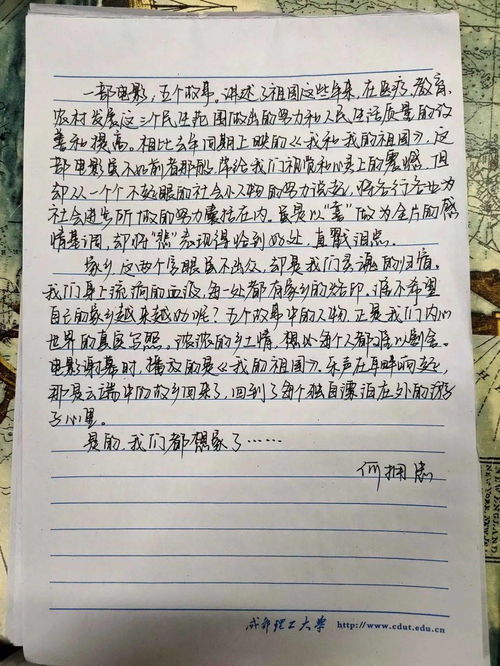 一部电影，五个故事。讲述了祖国这些年来，在医疗、教育、
农村发展这三个民生范围做出的努力和人民生活质量的改
善和提高。相比去年同期上映的《我和我的祖国》，这
部电影虽不如前者那般，带给我们视觉和心灵上的震憾，但
却从一个个不起眼的社会小人物的努力说起，将各行各业为
社会进步所做的努力囊括在内。虽是以“喜”做为全片的感
情基调，却将“悲”表现得恰到好处，直戳泪点。
家乡，这两个字眼虽不出众，却是我们灵魂的归宿。
我们身上流淌的血液，每一处都有家乡的烙印。谁不希望
自己的家乡越来越好呢？五个故事中的人物，正是我们内心
世界的真实写照。浓浓的乡土情，想必每个人都难以割舍。
电影谢幕时，播放的是《我的祖国》，乐声在耳畔响起，
那是云端中的故乡回来了，回到了每个独自漂泊在外的游
子心里。
是的，我们都想家了……
何拥忠
成都理工大学 http://www.cdut.edu.cn